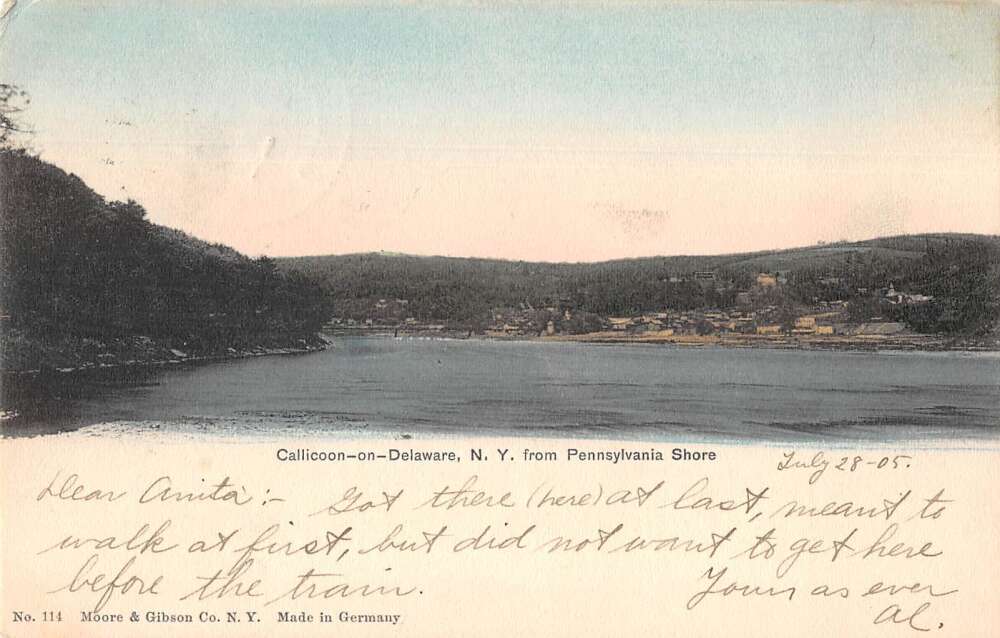 Callicoon-on-Delaware, N. Y. from Pennsylvania Shore
July 28-05.
Dear Anita:- Got there (here) at last, meant to
walk at first, but did not want to get here
before the train.
Yours as ever
Al.
No. 114 Moore & Gibson Co. N. Y. Made in Germany